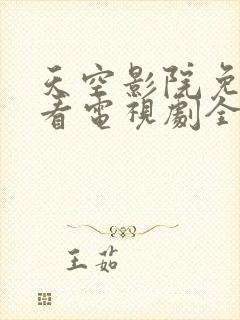 天空影院免
看電視劇全
王茹